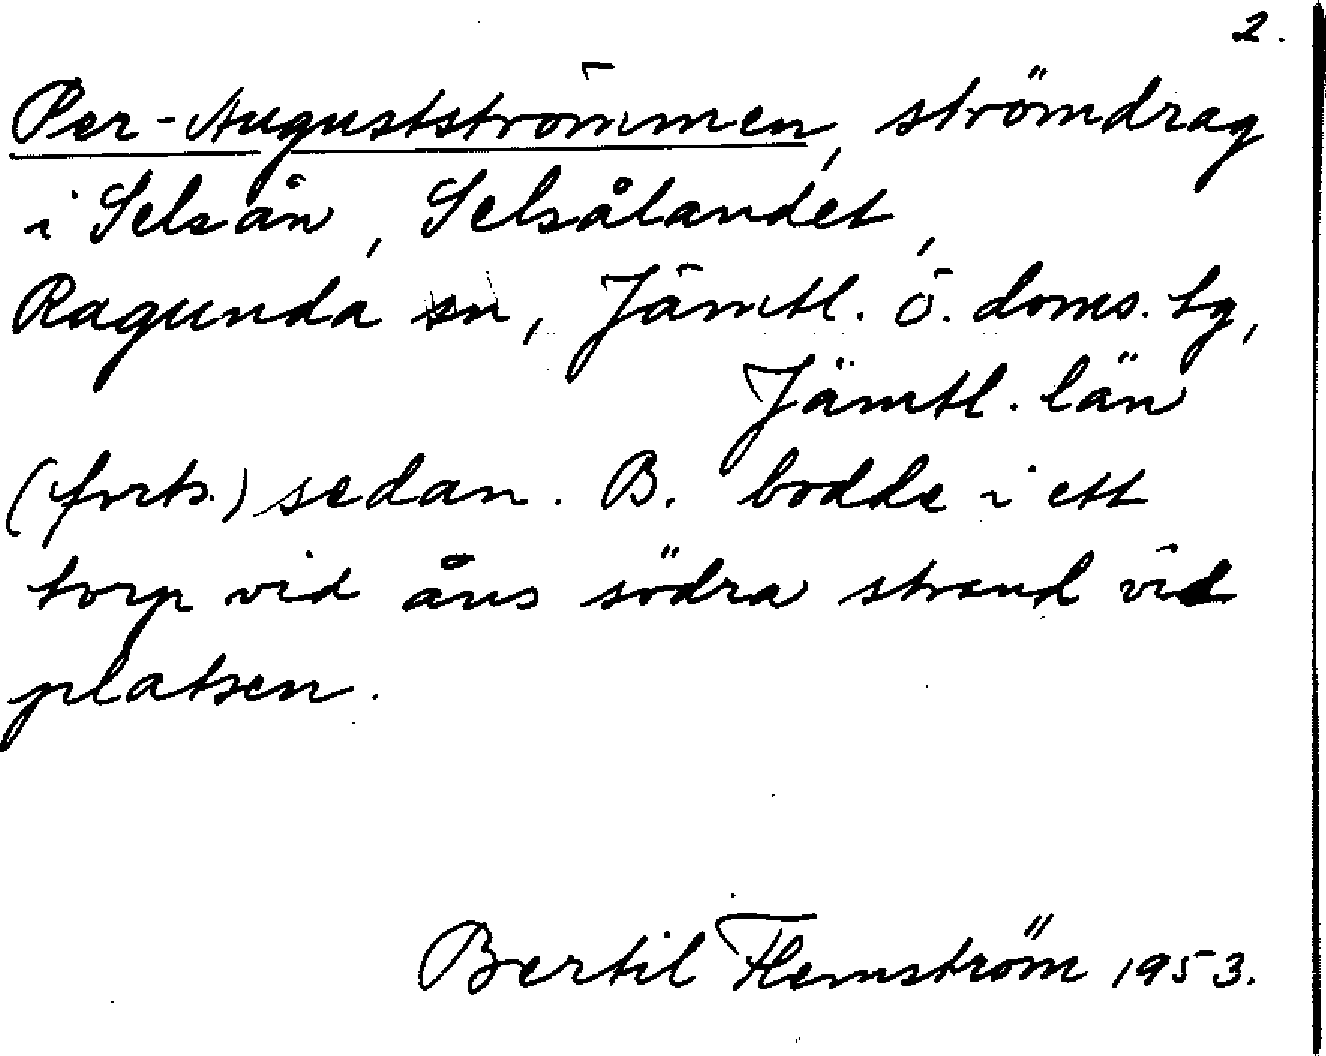 2.
Per-Augustströmmen, strömdrag
i Selsån, Selsålandet,
Ragunda sn, Jämtl. ö. doms. tg,
Jämtl. län
(forts.) sedan. B. bodde i ett
torp vid åns södra strand vid
platsen.
Bertil Flemström 1953.